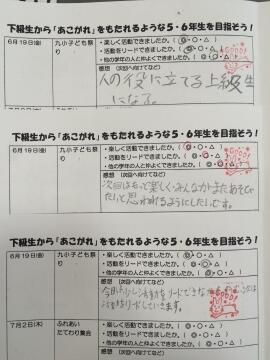 下級生から「あこがれ」をもたれるような5・6年生を目指そう！
6月19日(金)
九小子ども祭り
・楽しく活動できましたか。（◎・○・△）
・活動をリードできましたか。（◎・○・△）
・他の学年の人と仲よくできましたか。（◎・○・△）
感想　（次回へ向けてなど）
人の役に立てる上級生
になる。
下級生から「あこがれ」をもたれるような5・6年生を目指そう！
6月19日(金)
九小子ども祭り
・楽しく活動できましたか。（◎・○・△）
・活動をリードできましたか。（◎・○・△）
・他の学年の人と仲よくできましたか。（◎・○・△）
感想　（次回へ向けてなど）
次回はもっと楽しく、みんながまたあそび
たいと思われるようにしたいです。
下級生から「あこがれ」をもたれるような5・6年生を目指そう！
6月19日(金)
九小子ども祭り
・楽しく活動できましたか。（◎・○・△）
・活動をリードできましたか。（◎・○・△）
・他の学年の人と仲よくできましたか。（◎・○・△）
感想　（次回へ向けてなど）
リードしていきます。
7月2日(木)
ふれあい
たてわり集会
・楽しく活動できましたか。（◎・○・△）
・活動をリードできましたか。（◎・○・△）
・他の学年の人と仲よくできましたか。（◎・○・△）
感想　（次回へ向けてなど）